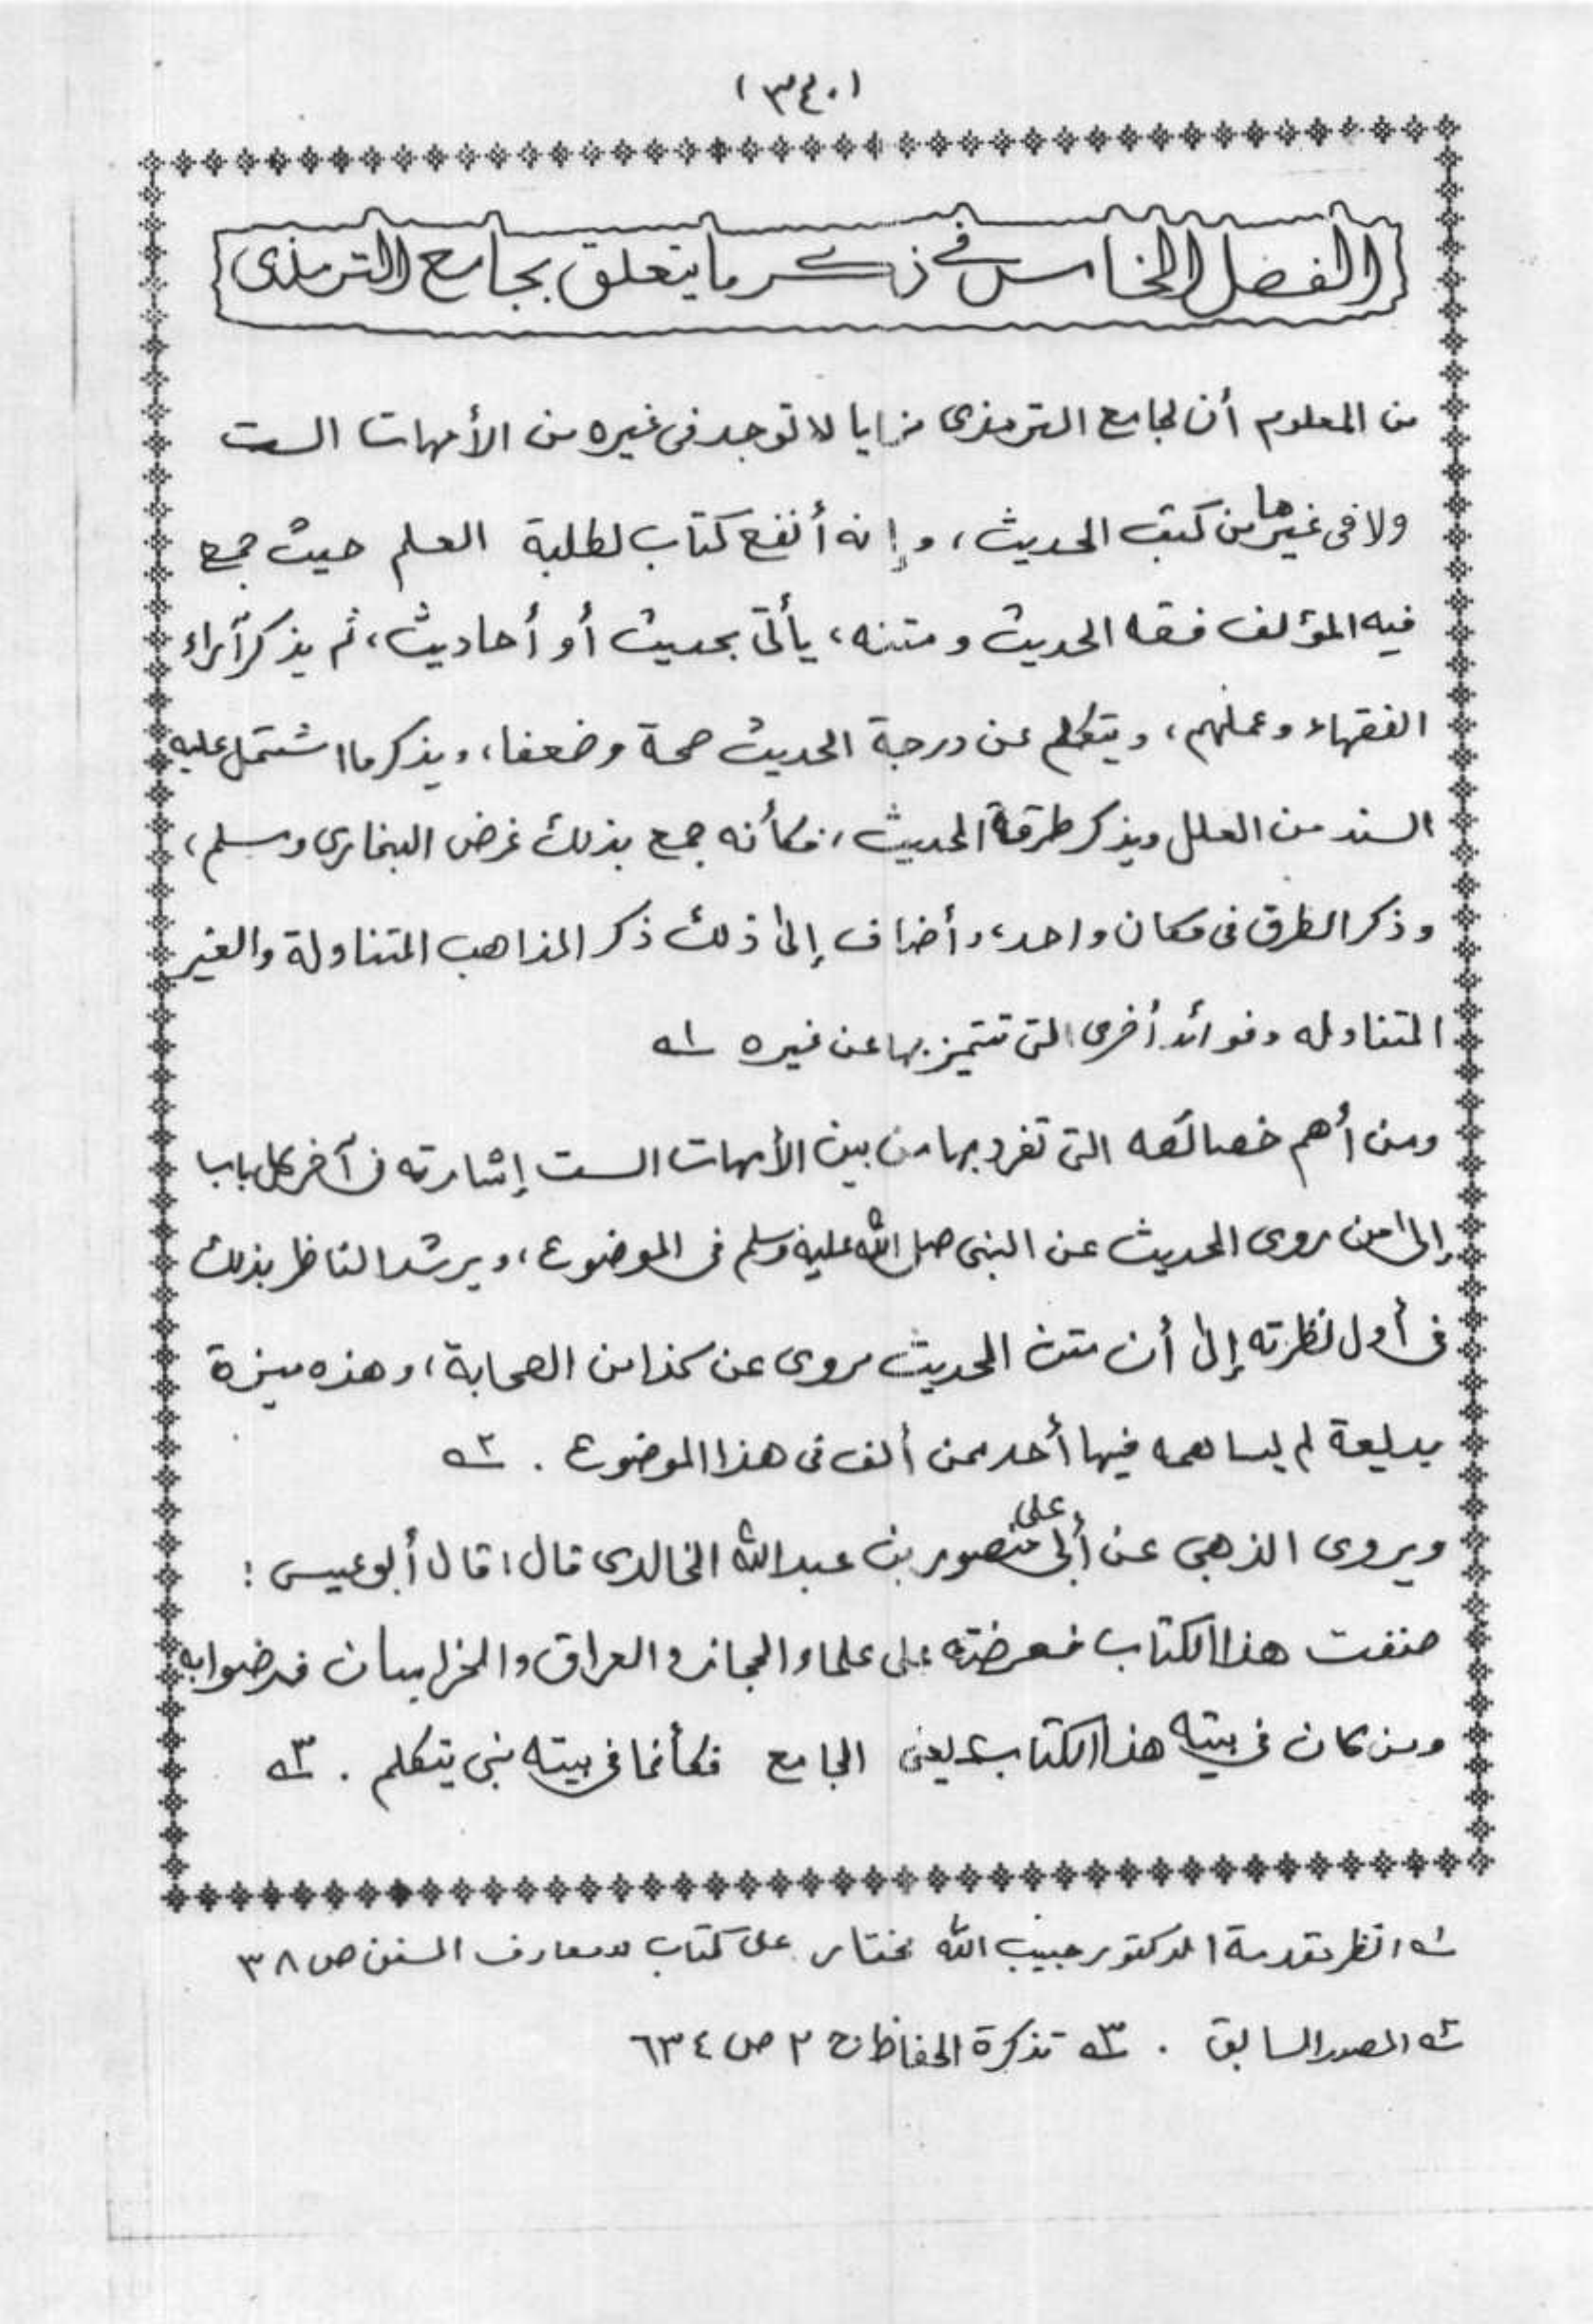 (٣٤٠)
الفصل الخامس في ذكر ما يتعلق بجامع الترمذى
من المعلوم أن لجامع الترمذى مزايا لا توجد فى غيره من الأمهات الست
ولا فى غيرها من كتب الحديث، وإنه أنفع كتاب لطلبة العلم حيث جمع
فيه المؤلف فقه الحديث ومتنه، يأتى بحديث أو أحاديث، ثم يذكر آراء
الفقهاء وعملهم، ويتكلم عن درجة الحديث صحة وضعفا، ويذكر ما اشتمل عليه
السند من العلل ويذكر طرقة الحديث، فكأنه جمع بذلك غرض البخارى ومسلم،
وذكر الطرق فى مكان واحد، وأضاف إلى ذلك ذكر المذاهب المتناولة والغير
المتناوله وفوائد أخرى التى تتميز بها عن غيره ١
ومن أهم خصائصه التى تفرد بها من بين الأمهات الست إشارته فى آخر كل باب
إلى من روى الحديث عن النبى صلى الله عليه وسلم فى الموضوع، ويرشد الناظر بذلك
فى أول نظرته إلى أن متن الحديث مروى عن كذا من الصحابة، وهذه ميزة
بديعة لم يساهمه فيها أحد ممن ألف فى هذا الموضوع . ٢
ويروى الذهبى عن أبى على منصور بن عبد الله الخالدى قال: قال أبو عيسى :
صنفت هذا الكتاب فعرضته على علماء الحجاز والعراق والخراسان فرضوا به
ومن كان فى بيته هذا الكتاب يعنى الجامع فكأنما فى بيته نبى يتكلم . ٣
١ انظر مقدمة الدكتور حبيب الله مختار على كتاب معارف السنن ص ٣٨
٢ المصدر السابق . ٣ تذكرة الحفاظ ج ٢ ص ٦٣٤